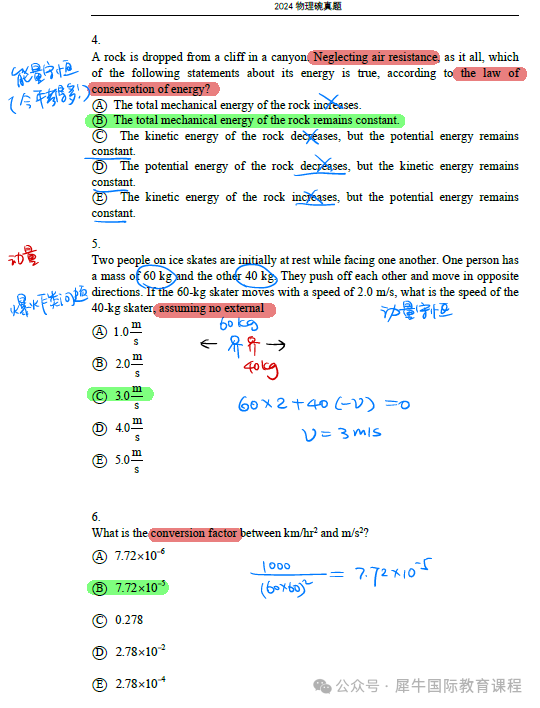 2024 物理碗真题
4.
A rock is dropped from a cliff in a canyon. Neglecting air resistance, as it all, which
能量守恒
of the following statements about its energy is true, according to the law of
conservation of energy?
Ⓐ The total mechanical energy of the rock increases.
Ⓑ The total mechanical energy of the rock remains constant.
Ⓒ The kinetic energy of the rock decreases, but the potential energy remains
constant.
Ⓓ The potential energy of the rock decreases, but the kinetic energy remains
constant.
Ⓔ The kinetic energy of the rock increases, but the potential energy remains
constant.
5.
动量
Two people on ice skates are initially at rest while facing one another. One person has
a mass of 60 kg and the other 40 kg. They push off each other and move in opposite
爆炸类问题
directions. If the 60-kg skater moves with a speed of 2.0 m/s, what is the speed of the
40-kg skater, assuming no external
动量守恒
Ⓐ 1.0 m/s
60kg
Ⓑ 2.0 m/s
40kg
Ⓒ 3.0 m/s
60×2+40(-v)=0
Ⓓ 4.0 m/s
v=3m/s
Ⓔ 5.0 m/s
6.
What is the conversion factor between km/hr² and m/s²?
Ⓐ 7.72×10⁻⁶
1000/(60×60)² = 7.72×10⁻⁵
Ⓑ 7.72×10⁻⁵
Ⓒ 0.278
Ⓓ 2.78×10⁻²
Ⓔ 2.78×10⁻⁴
公众号 · 犀牛国际教育课程